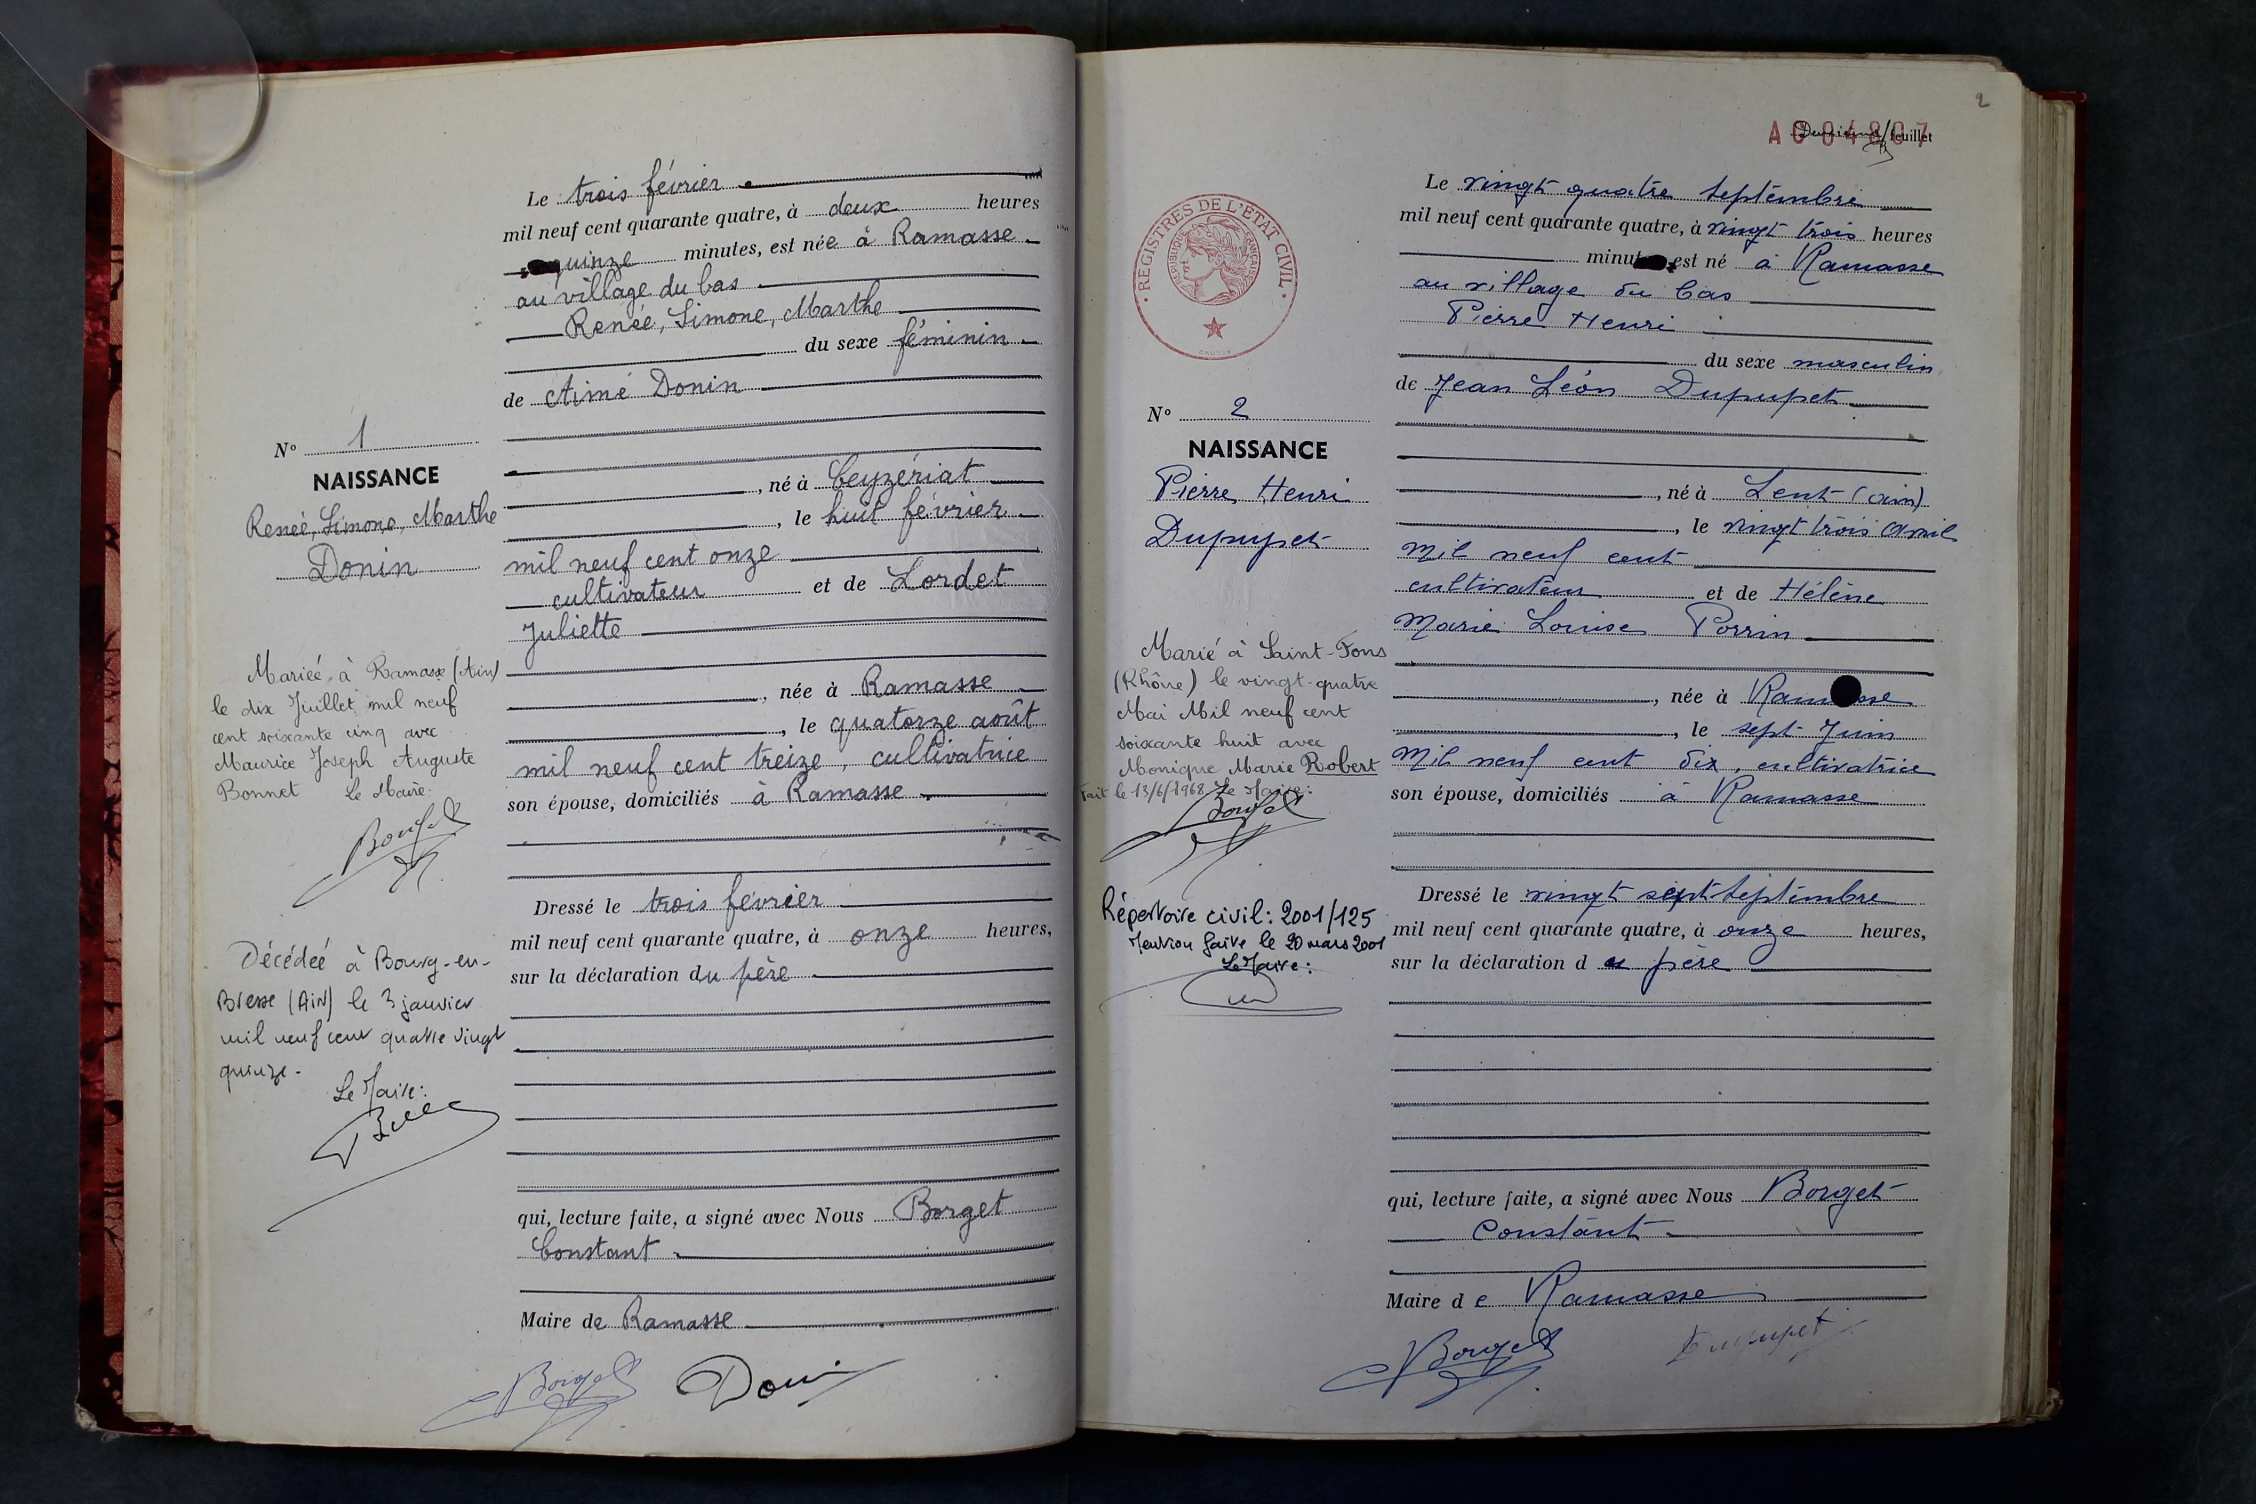 Le trois février
mil neuf cent quarante quatre, à deux heures
quinze minutes, est née à Ramasse
au village du bas
Renée, Simone, Marthe
du sexe féminin
de Aimé Donin
N° 1
NAISSANCE
Renée, Simone, Marthe
Donin
, né à Ceyzériat
, le huit février
mil neuf cent onze
cultivateur et de Lordet
Juliette
, née à Ramasse
, le quatorze août
mil neuf cent treize, cultivatrice
son épouse, domiciliés à Ramasse
Mariée à Ramasse (Ain)
le dix Juillet mil neuf
cent soixante cinq avec
Maurice Joseph Auguste
Bonnet Le Maire:
Dressé le trois février
mil neuf cent quarante quatre, à onze heures,
sur la déclaration du père
Décédée à Bourg-en-
Bresse (AIN) le 3 janvier
mil neuf cent quatre vingt
quinze.
Le Maire:
qui, lecture faite, a signé avec Nous Borget
Constant
Maire de Ramasse
Borget Donin
2
A004807
Deuxième feuillet
Le vingt quatre septembre
mil neuf cent quarante quatre, à vingt trois heures
minutes est né à Ramasse
au village du bas
Pierre Henri
du sexe masculin
de Jean Léon Dupupet
REGISTRES DE L'ETAT CIVIL
REPUBLIQUE FRANÇAISE
N° 2
NAISSANCE
Pierre Henri
Dupupet
, né à Lent (ain)
, le vingt trois avril
mil neuf cent
cultivateur et de Hélène
Marie Louise Perrin
, née à Ramasse
, le sept Juin
mil neuf cent dix, cultivatrice
son épouse, domiciliés à Ramasse
Marié à Saint-Fons
(Rhône) le vingt-quatre
Mai Mil neuf cent
soixante huit avec
Monique Marie Robert
Fait le 13/6/1968 Le Maire:
Borget
Répertoire civil: 2001/125
Mention faite le 20 mars 2001
Le Maire:
Dressé le vingt sept septembre
mil neuf cent quarante quatre, à onze heures,
sur la déclaration du père
qui, lecture faite, a signé avec Nous Borget
Constant
Maire de Ramasse
Borget Dupupet